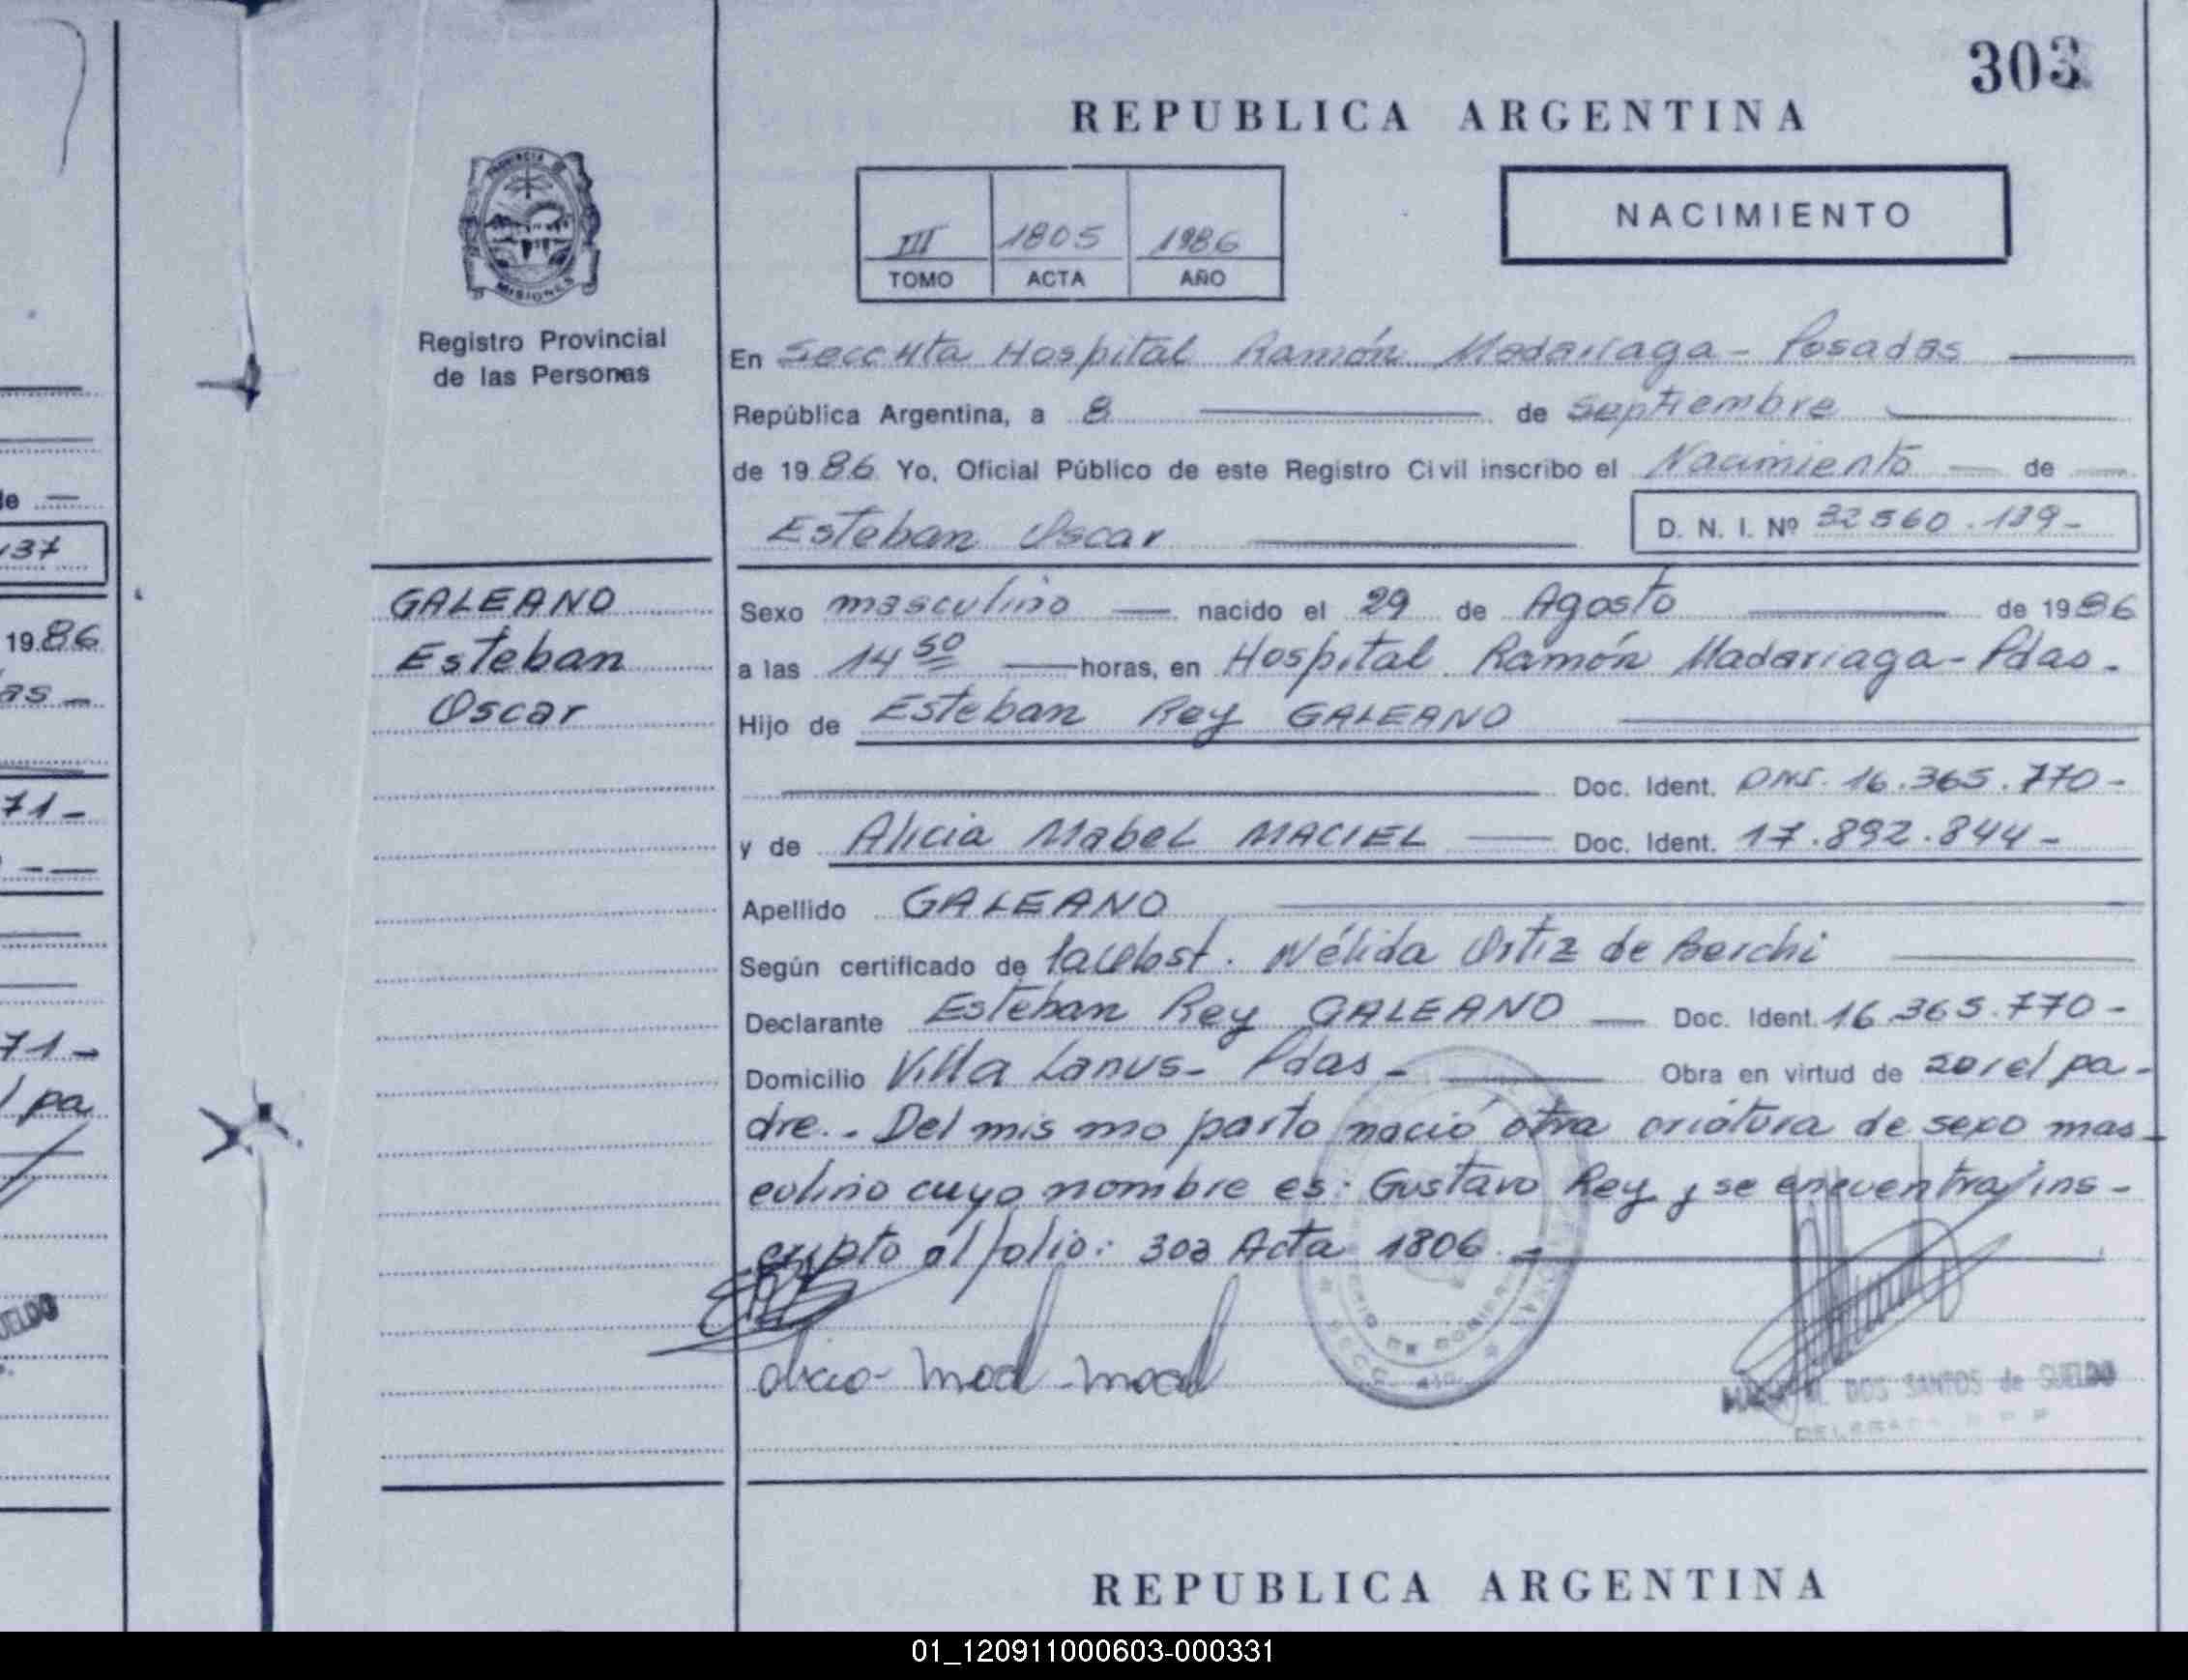 303
REPUBLICA ARGENTINA
PROVINCIA DE
MISIONES
III 1805 1986
TOMO ACTA AÑO
NACIMIENTO
Registro Provincial
de las Personas
En Secc 4ta Hospital Ramón Madariaga - Posadas
República Argentina, a 8 de Septiembre
de 1986 Yo, Oficial Público de este Registro Civil inscribo el Nacimiento de
Esteban Oscar
D. N. I. Nº 32 560.139-
GALEANO
Esteban
Oscar
Sexo masculino nacido el 29 de Agosto de 1986
a las 14 50 horas, en Hospital Ramón Madariaga - Pdas.
Hijo de Esteban Rey GALEANO
Doc. Ident. DNI. 16.365.770-
y de Alicia Mabel MACIEL Doc. Ident. 17.892.844-
Apellido GALEANO
Según certificado de Nélida Ortiz de Berchi
Declarante Esteban Rey GALEANO Doc. Ident. 16.365.770-
Domicilio Villa Lanus - Pdas - Obra en virtud de ser el pa-
dre.. Del mis mo parto nació otra criatura de sexo mas-
culino cuyo nombre es: Gustavo Rey y se encuentra ins-
cripto al folio: 303 Acta 1806.-
M. DOS SANTOS de SUELDO
REPUBLICA ARGENTINA
de
137
1986
as -
71-
71-
l pa
SUELDO
01_120911000603-000331